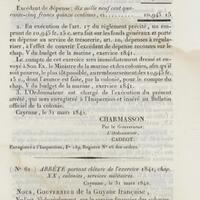 Excédent de dépense; dix mille neuf cent qua-
rante-cinq francs quinze centimes, ci. 10,945 15
2. En exécution de l'art. 17 du règlement précité, un em-
prunt de 10,945 fr. 15 c. sera fait sur les fonds généraux et porté
en dépense au service de trésorerie, art. 10, dépenses à régula-
riser, à l'effet de couvrir l'excédent de dépense reconnu sur le
chap. V du budget de la marine, exercice 1841.
Le compte de cet exercice sera immédiatement dressé et en-
voyé à Son Ex. le Ministre de la marine et des colonies, afin qu'il
soit pourvu au remboursement de la somme de 10,945 fr. 15 c.
dont l'avance est faite par la colonie, pour le compte du
chap. V du budget de la marine, exercice 1841.
3. L'Ordonnateur est chargé de l'exécution du présent
arrêté, qui sera enregistré à l'Inspection et inséré au Bulletin
officiel de la colonie.
Cayenne, le 31 mars 1842.
CHARMASSON
Par le Gouverneur:
L'Ordonnateur,
CADEOT.
Enregistré à l'Inspection, F° 189, Registre N° 21 des ordres.
N° 61. ARRÊTÉ portant clôture de l'exercice 1841, chap.
XX; colonies, services militaires.
Cayenne, le 31 mars 1842.
Nous, Gouverneur de la Guyane française,